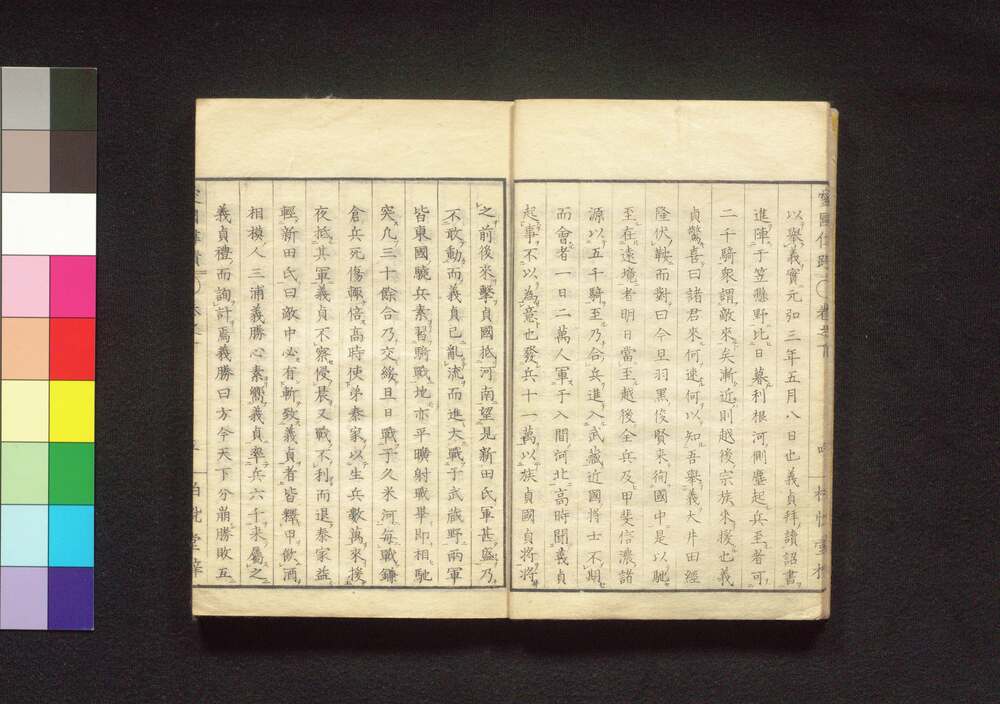 以擧義實元弘三年五月八日也義貞拜讀詔書
進陣于笠懸野比日暮利根河側塵起兵至者可
二千騎衆謂敵來矣漸近則越後宗族來援也義
貞驚喜曰諸君來何速何以知吾擧義大井田經
隆伏鞍而對曰今旦羽黑俊賢來徇國中是以馳
至在遠境者明日當至越後全兵及甲斐信濃諸
源以五千騎至乃合兵進入武藏近國將士不期
而會者一日二萬人軍于入間河北高時聞義貞
起事不以為意也發兵十一萬以族貞國貞將將
之前後來擊貞國抵河南望見新田氏軍甚盛乃
不敢動而義貞已亂流而進大戰于武藏野兩軍
皆東國驍兵素習騎戰地亦平曠射戰畢即相馳
突凡三十餘合乃交綏旦日戰于久米河每戰鎌
倉兵死傷輙倍高時使弟泰家以生兵數萬來援
夜抵其軍義貞不察侵晨又戰不利而退泰家益
輕新田氏曰敵中必有斬致義貞者皆釋甲飲酒
相模人三浦義勝心素嚮義貞率兵六千來屬之
義貞禮而詢計焉義勝曰方今天下分崩勝敗互